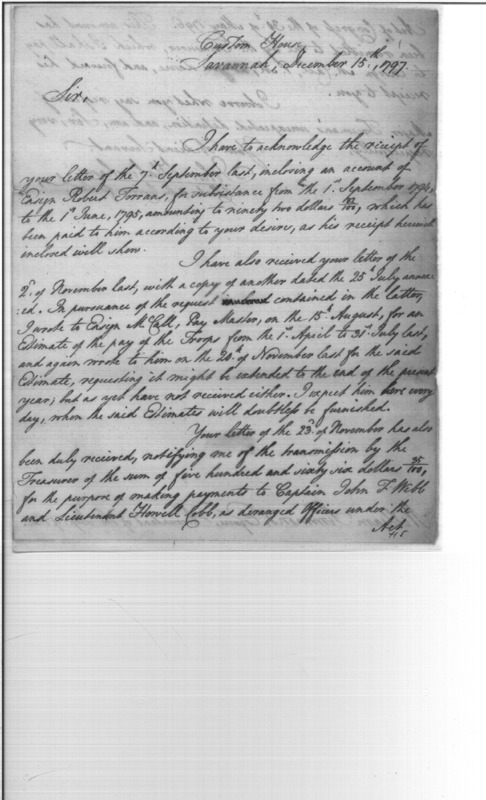 Custom House,
Savannah, December 15th, 1797.
Sir,
I have to acknowledge the receipt of
your letter of the 7th September last, inclosing an account of
Ensign Robert Torrans, for subsistance from the 1. September 1794,
to the 1st June, 1795, amounting to ninety two dollars /100, which has
been paid to him according to your desire, as his receipt herewith
inclosed will show.
I have also received your letter of the
2d of November last, with a copy of another dated the 25th July annex
:ed. In pursuance of the request contained in the latter,
I wrote to Ensign McCall, Pay Master, on the 15th August, for an
Estimate of the pay of the Troops from the 1st April to 31st July last,
and again wrote to him on the 24th of November last for the said
Estimate, requesting it might be extended to the end of the present
year; but as yet have not received either. I expect him here every
day, when the said Estimates will doubtless be furnished.
Your letter of the 23d of November has also
been duly received, notifying me of the transmission by the
Treasurer of the sum of five hundred and sixty six dollars 35/100,
for the purpose of making payments to Captain John F. Webb
and Lieutenant Howell Cobb, as deranged Officers under the
Act